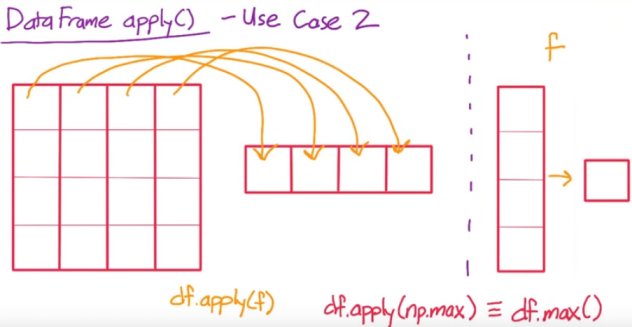 DataFrame apply() - Use Case 2
f
df.apply(f)
df.apply(np.max) ≡ df.max()